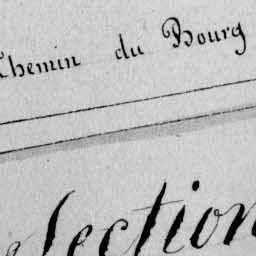 Chemin du Bourg
Section